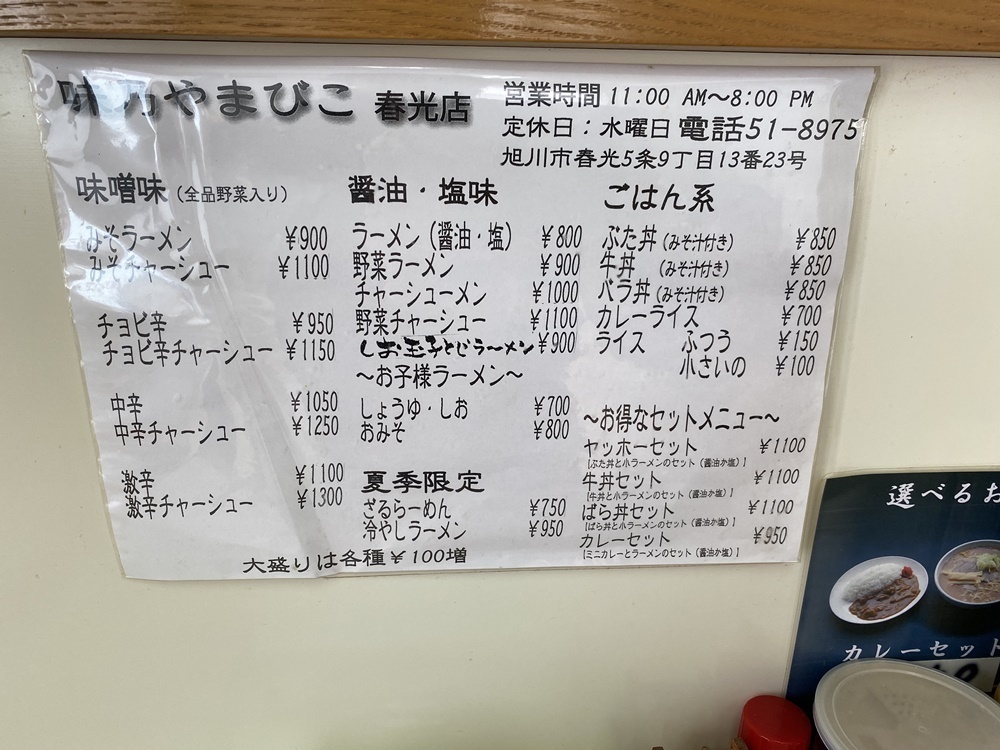 味乃やまびこ 春光店
営業時間 11:00 AM〜8:00 PM
定休日：水曜日 電話51-8975
旭川市春光5条9丁目13番23号
味噌味（全品野菜入り）
みそラーメン ￥900
みそチャーシュー ￥1100
チョビ辛 ￥950
チョビ辛チャーシュー ￥1150
中辛 ￥1050
中辛チャーシュー ￥1250
激辛 ￥1100
激辛チャーシュー ￥1300
醤油・塩味
ラーメン（醤油・塩） ￥800
野菜ラーメン ￥900
チャーシューメン ￥1000
野菜チャーシュー ￥1100
しお玉子とじラーメン ￥900
〜お子様ラーメン〜
しょうゆ・しお ￥700
おみそ ￥800
夏季限定
ざるらーめん ￥750
冷やしラーメン ￥950
大盛りは各種￥100増
ごはん系
ぶた丼（みそ汁付き） ￥850
牛丼（みそ汁付き） ￥850
バラ丼（みそ汁付き） ￥850
カレーライス ￥700
ライス ふつう ￥150
小さいの ￥100
〜お得なセットメニュー〜
ヤッホーセット ￥1100
【ぶた丼と小ラーメンのセット（醤油か塩）】
牛丼セット ￥1100
【牛丼と小ラーメンのセット（醤油か塩）】
ばら丼セット ￥1100
【ばら丼と小ラーメンのセット（醤油か塩）】
カレーセット ￥950
【ミニカレーとラーメンのセット（醤油か塩）】
選べるお
カレーセット